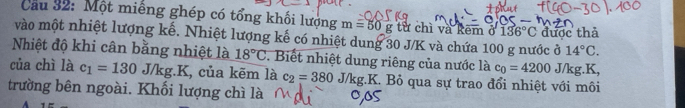 Câu 32: Một miếng ghép có tổng khối lượng m = 50 g từ chì và kẽm ở 136°C được thả
vào một nhiệt lượng kế. Nhiệt lượng kế có nhiệt dung 30 J/K và chứa 100 g nước ở 14°C.
Nhiệt độ khi cân bằng nhiệt là 18°C. Biết nhiệt dung riêng của nước là c₀ = 4200 J/kg.K,
của chì là c₁ = 130 J/kg.K, của kẽm là c₂ = 380 J/kg.K. Bỏ qua sự trao đổi nhiệt với môi
trường bên ngoài. Khối lượng chì là mchì 0,05